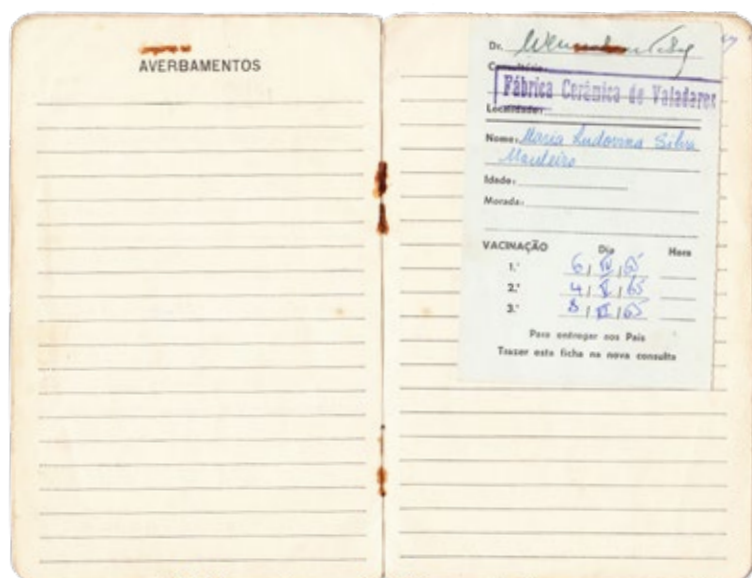 AVERBAMENTOS
Dr.
Consultório:
Fábrica Cerâmica de Valadares
Localidade:
Nome: Maria Ludovina Silva
Monteiro
Idade:
Morada:
VACINAÇÃO Dia Hora
1.ª 6, IV, 65
2.ª 4, V, 65
3.ª 8, VI, 65
Para entregar aos Pais
Trazer esta ficha na nova consulta